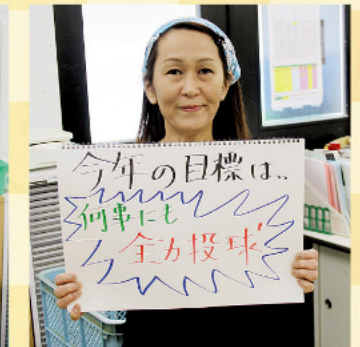 今年の目標は..
何事にも
全力投球